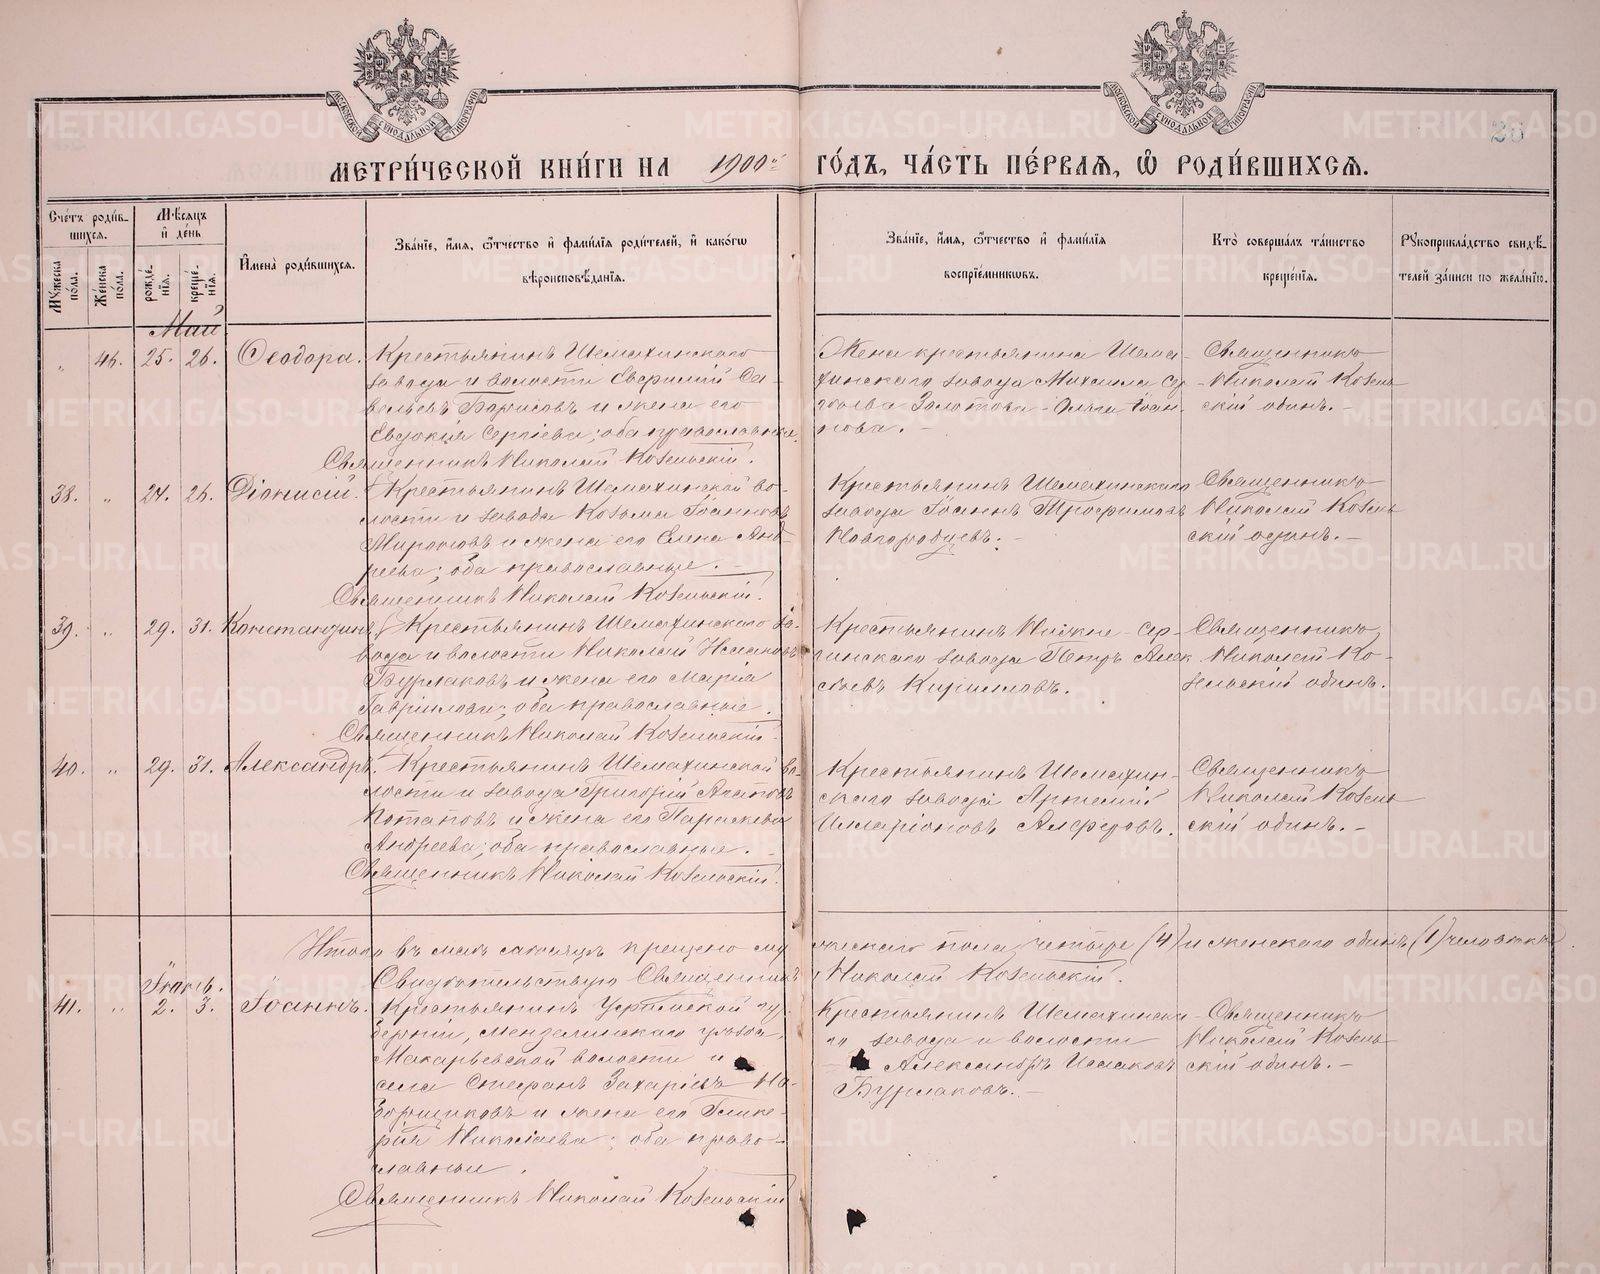 МЕТРИ́ЧЕСКОЙ КНИ́ГИ НА 1900й ГО́ДЪ, ЧА́СТЬ ПЕ́РВАѦ, Ѡ҆ РОДИ́ВШИХСѦ.
Сче́тъ роди́в-
шихсѧ.
Мꙋ́жеска по́ла.
Же́нска по́ла.
Мѣ́сѧцъ и҆ де́нь
рожде́-
нїѧ.
креще́-
нїѧ.
И҆мена̀ роди́вшихсѧ.
Зва́нїе, и҆́мѧ, ѻ҆́тчество и҆ фами́лїѧ роди́телей, и҆ како́гѡ
вѣроисповѣ́данїѧ.
Зва́нїе, и҆́мѧ, ѻ҆́тчество и҆ фами́лїѧ
воспрїе́мникѡвъ.
Кто̀ соверша́лъ та́инство
креще́нїѧ.
Рꙋкоприкла́дство свидѣ́-
телей за́писи по жела́нїю.
Май
" 46. 25. 26. Ѳеодора.
Крестьянинъ Шемахинскаго
завода и волости Евфимій Са-
вельевъ Борисовъ и жена его
Евдокія Сергіева; оба православные.
Священникъ Николай Козельскій.
Жена крестьянина Шема-
хинскаго завода Михаила Сер-
гіева Золотова - Ольга Іоан-
нова. -
Священникъ
Николай Козель-
скій одинъ. -
38. " 24. 26. Діонисій.
Крестьянинъ Шемахинской во-
лости и завода Козьма Іоанновъ
Мироновъ и жена его Елена Анд-
реева; оба православные. -
Священникъ Николай Козельскій.
Крестьянинъ Шемахинскаго
завода Іоаннъ Трофимовъ
Новгородцевъ. -
Священникъ
Николай Козель-
скій одинъ. -
39. " 29. 31. Константинъ
Крестьянинъ Шемахинскаго за-
вода и волости Николай Исааковъ
Бурлаковъ и жена его Марія
Гавріилова; оба православные.
Священникъ Николай Козельскій.
Крестьянинъ Нижне-Сер-
гинскаго завода Петръ Алек-
сѣевъ Кирилловъ.
Священникъ
Николай Ко-
зельскій одинъ.
40. " 29. 31. Александръ.
Крестьянинъ Шемахинской во-
лости и завода Григорій
Потаповъ и жена его Параскева
Андреева; оба православные. -
Священникъ Николай Козельскій.
Крестьянинъ Шемахин-
скаго завода Артемій
Илларіоновъ Алферовъ.
Священникъ
Николай Козель-
скій одинъ. -
Итого въ маѣ мѣсяцѣ крещено му-
жескаго пола четыре (4) и женскаго одинъ (1) человѣкъ.
Свидѣтельствую Священникъ
Николай Козельскій.
Іюнь.
41. " 2. 3. Іоаннъ.
Крестьянинъ Уфимской гу-
берніи, Мензелинскаго уѣзда,
Макарьевской волости и
села Стефанъ Захаріевъ На-
борщиковъ и жена его Глике-
рія Николаева; оба право-
славные.
Священникъ Николай Козельскій
Крестьянинъ Шемахинска-
го завода и волости
Александръ Исааковъ
Бурлаковъ. -
Священникъ
Николай Козель-
скій одинъ. -
METRIKI.GASO-URAL.RU